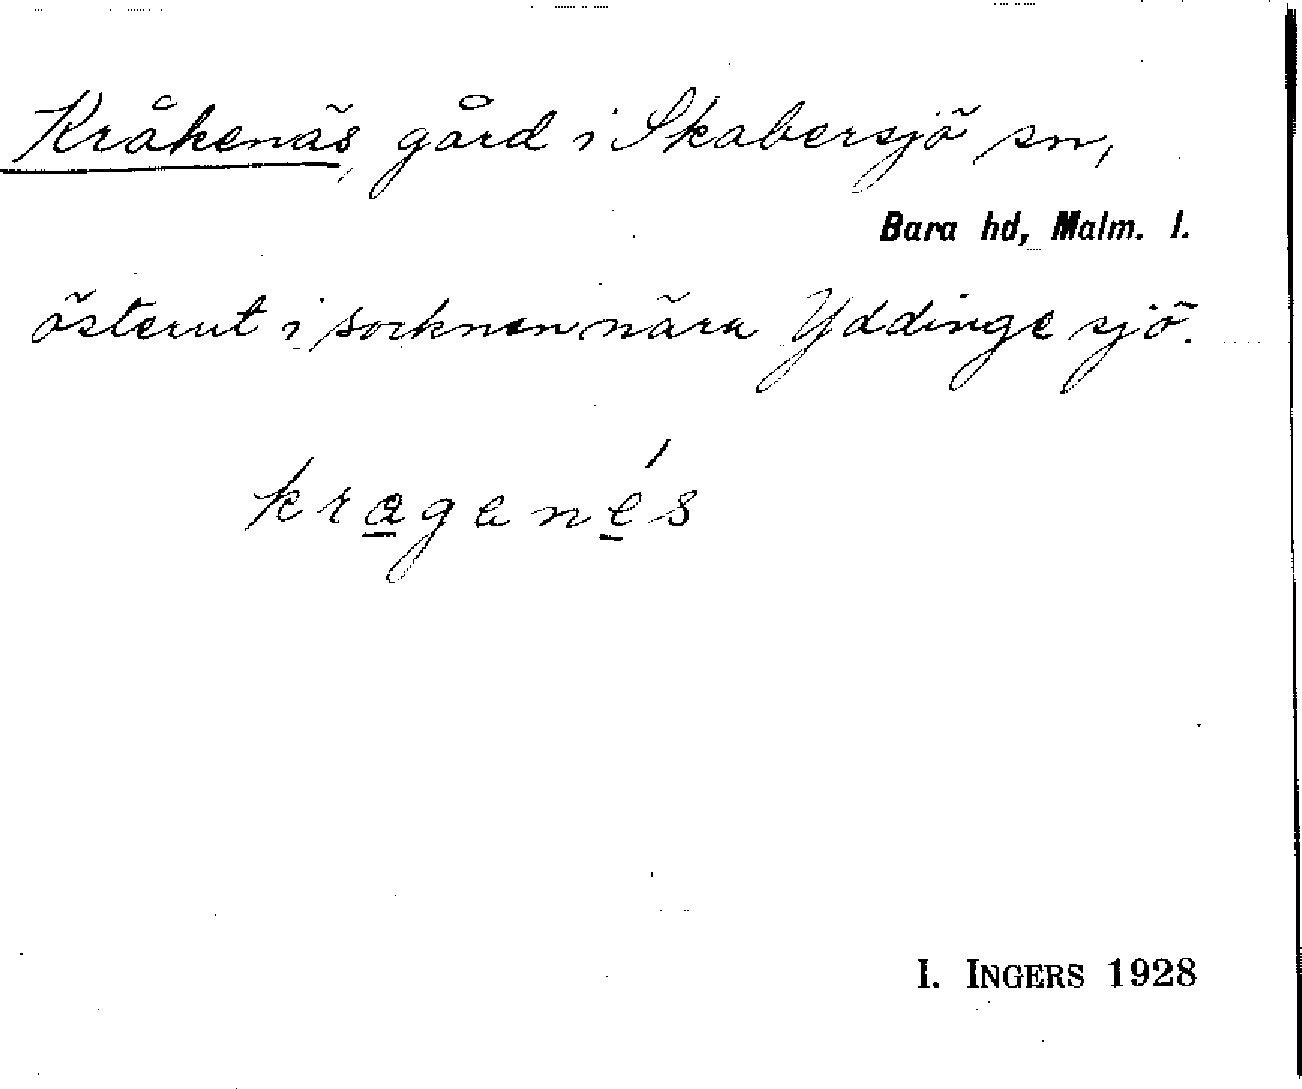 Kråkenäs, gård i Skabersjö sn,
Bara hd, Malm. l.
österut i socknen nära Yddinge sjö.
kraganés
I. INGERS 1928